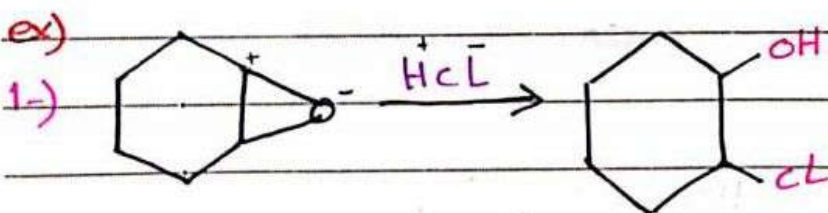 ex)
1-) + - H⁺cL⁻ OH
cL